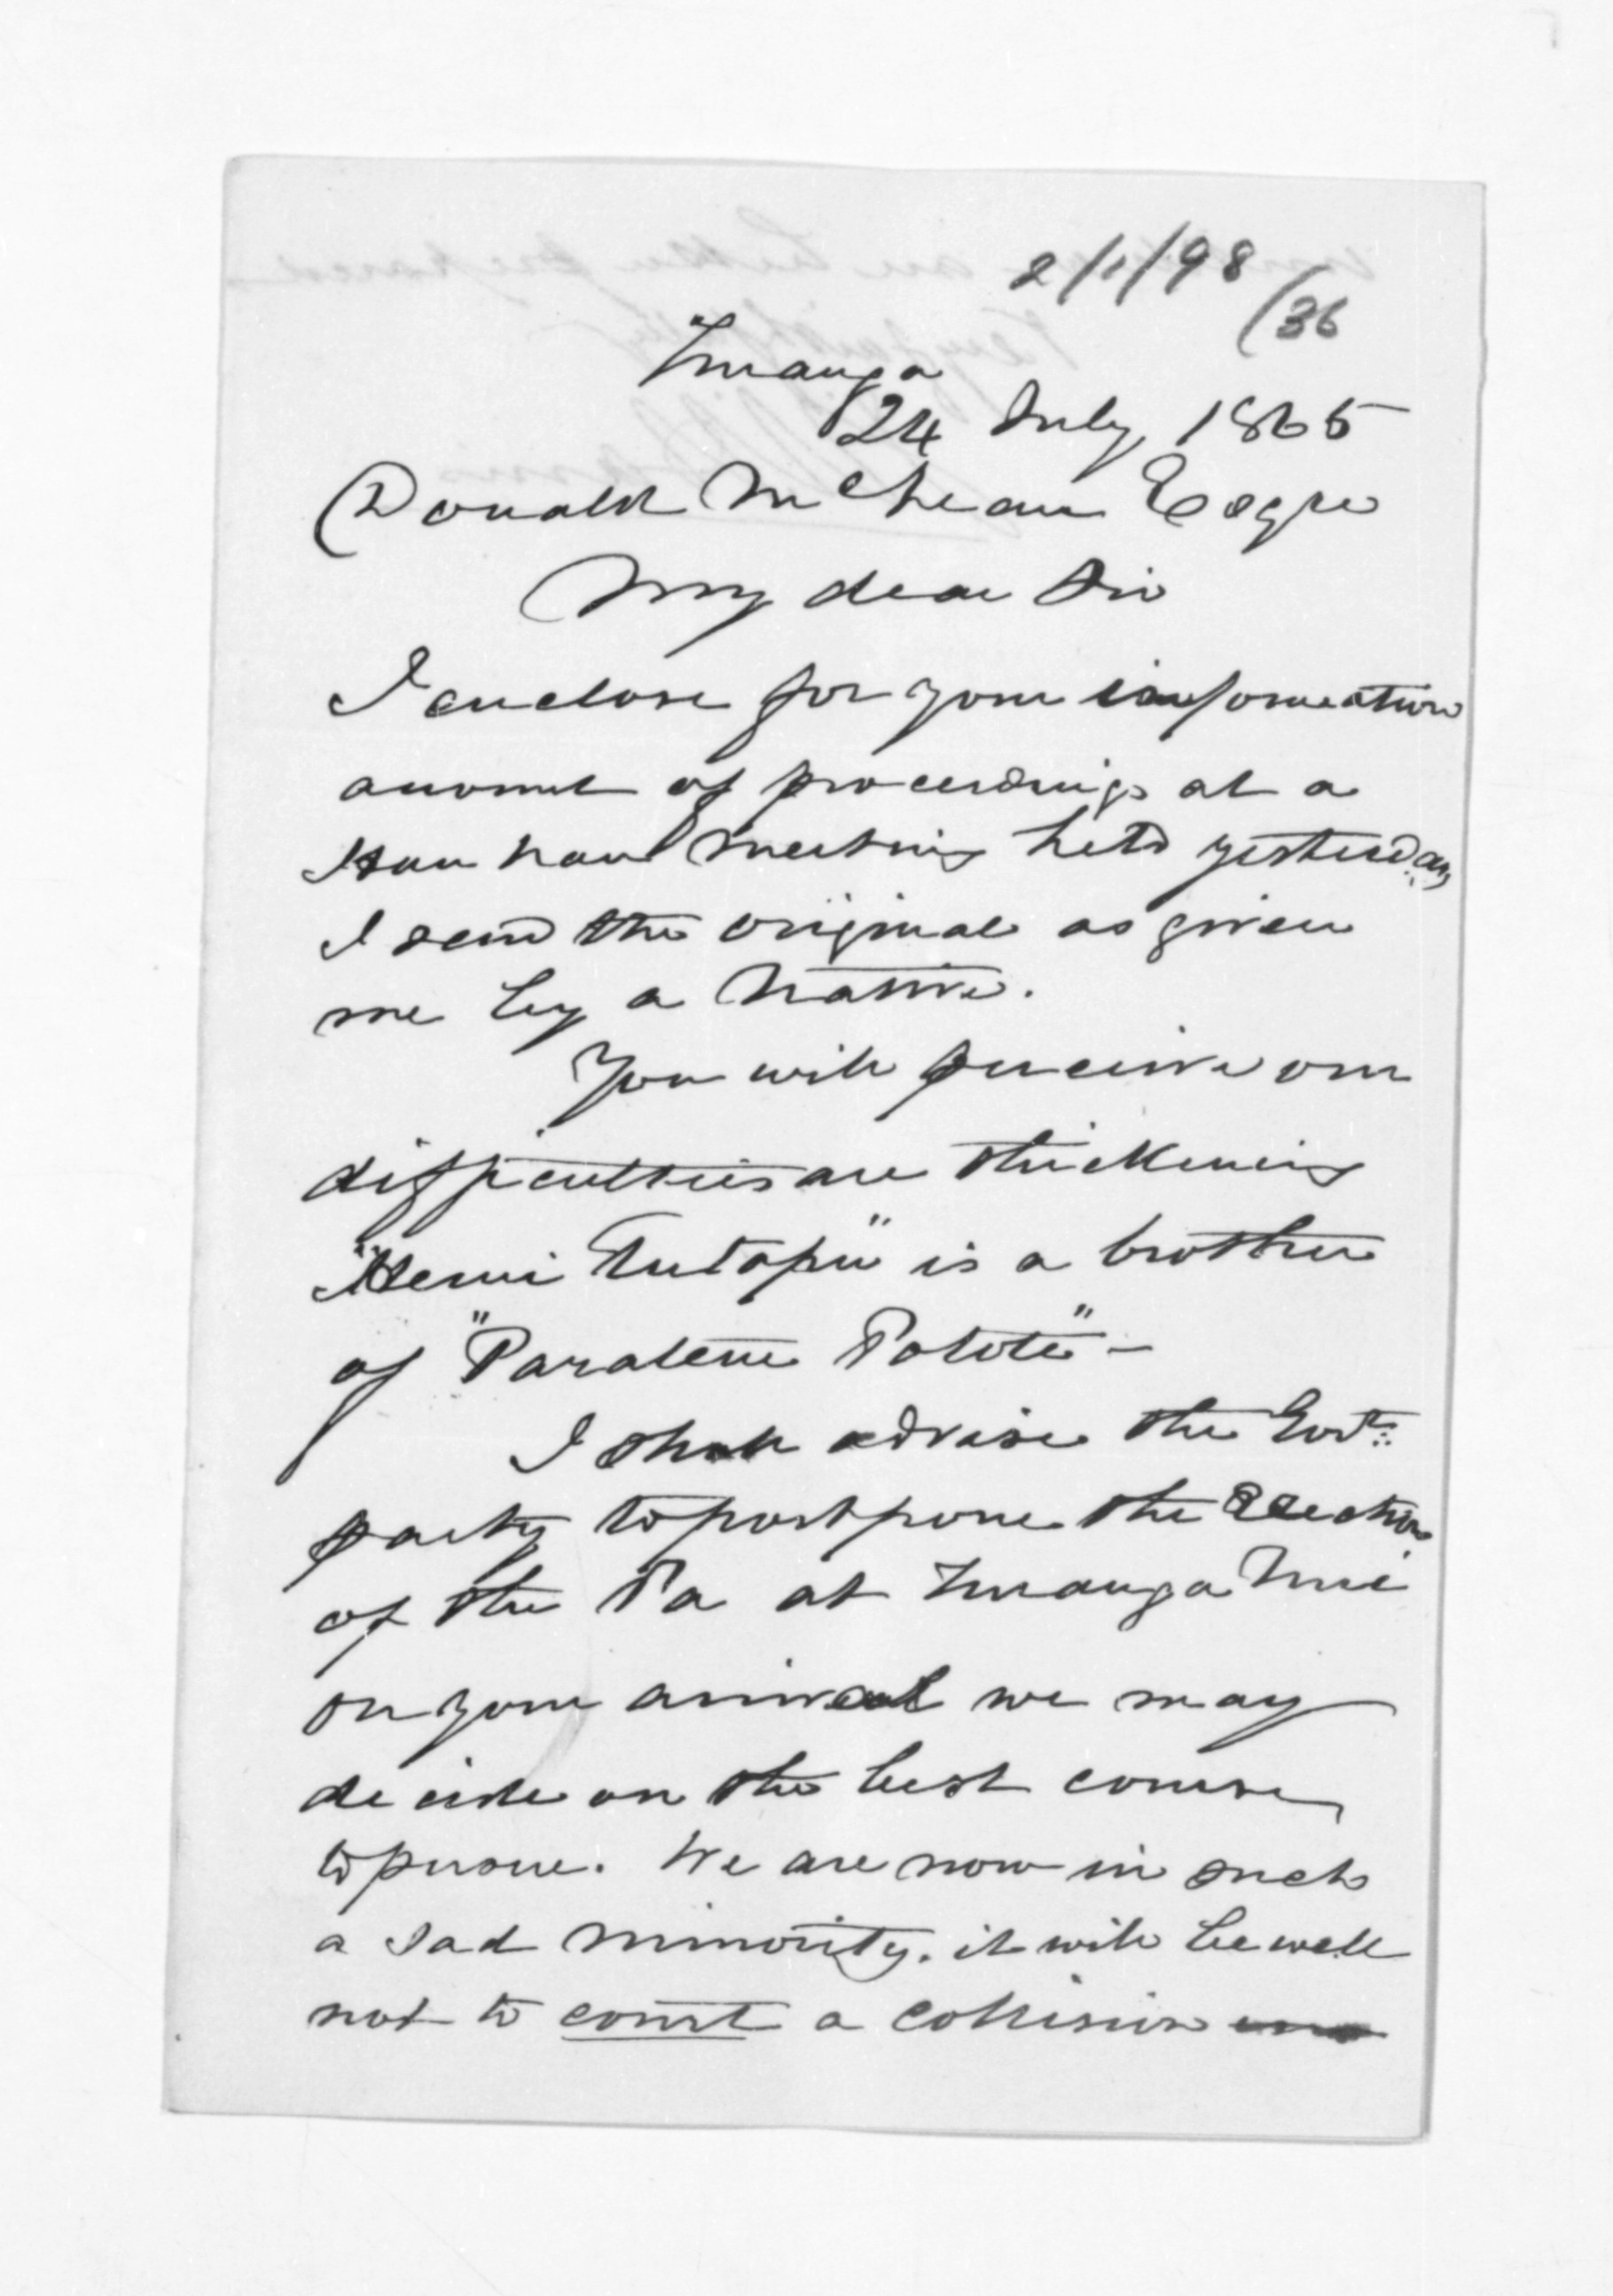 2/1/98
/36
Turanga
24 July 1865
Donald McLean Esqre
My dear Sir
I enclose for your information
account of proceedings at a
Hau hau meeting held yesterday
I send the original as given
me by a Native.
You will perceive our
difficulties are thickening
"Hemi Tutapu" is a brother
of "Paratene Pototi" –
I shall advise the Govt:
party to postpone the erection
of the Pa at Turanga Nui
on your arrival we may
decide on the best course
to pursue. We are now in such
a sad minority. it will be well
not to court a collision